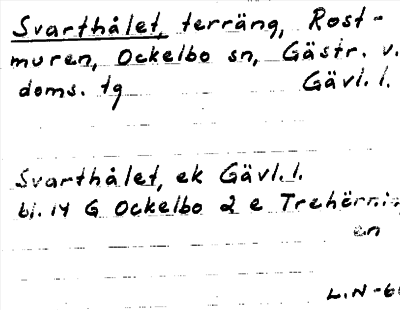 Svarthålet, terräng, Rost-
muren, Ockelbo sn, Gästr. v.
doms. tg Gävl. l.
Svarthålet, ek Gävl. l.
bl. 14 G Ockelbo 2 e Trehörnin
en
L.N -6